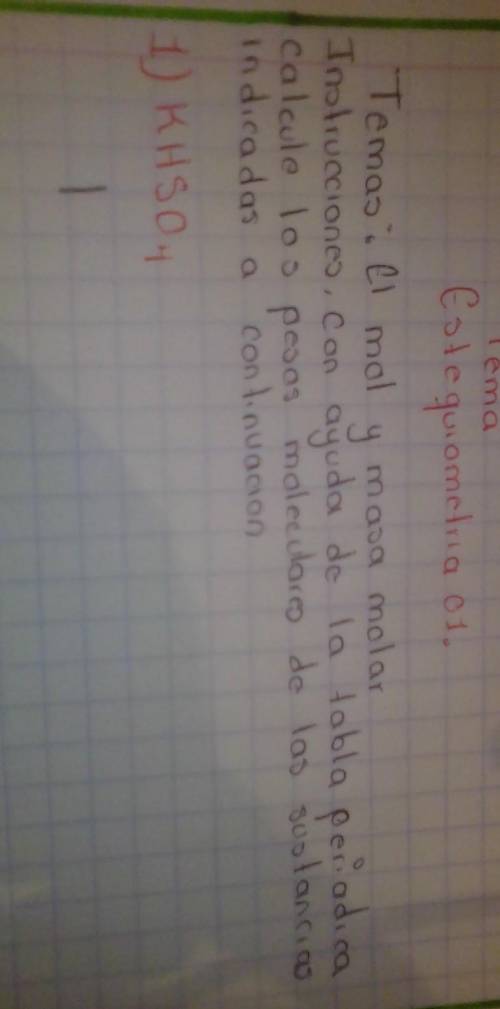 Tema
Estequiometria 01.
Temas: El mol y masa molar
Instrucciones, con ayuda de la tabla periodica
calcule los pesos moleculares de las sustancias
indicadas a continuacion
1) KHSO4